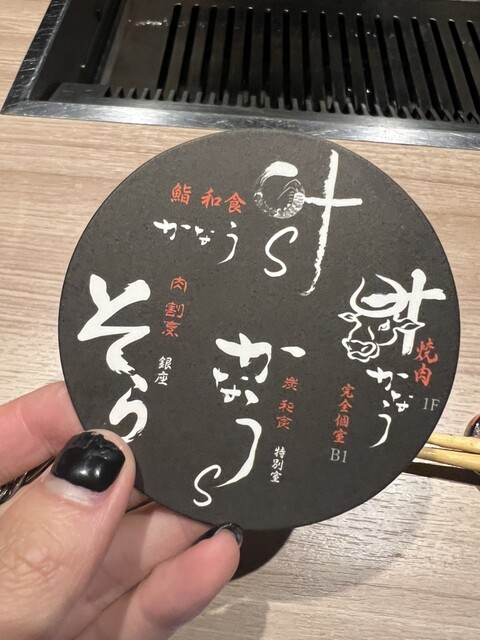 鮨 和食
かなう
叶
S
肉割烹
銀座
そら
かなう
S
炭 和食
特別室
叶
焼肉
かなう
1F
完全個室
B1